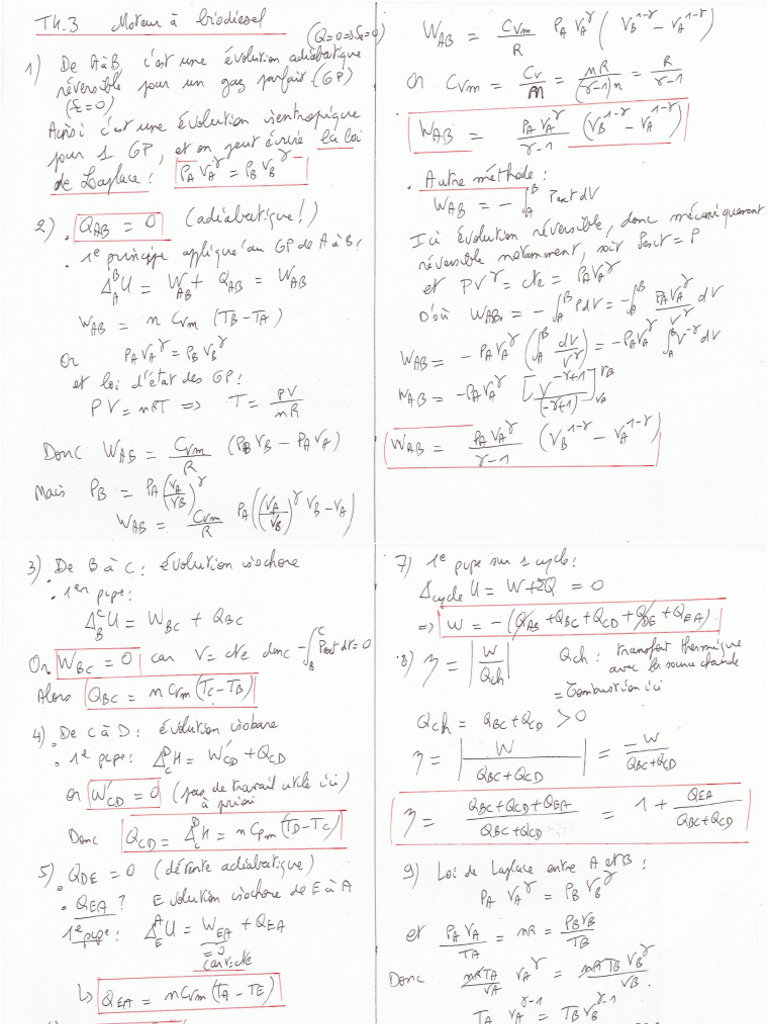 Th.3 Moteur à biodiesel
(Q=0=>δQ=0)
1) De A à B, c'est une évolution adiabatique
réversible pour un gaz parfait. (GP)
Ainsi c'est une évolution isentropique
pour 1 GP, et on peut écrire la loi
de Laplace : P_A V_A^γ = P_B V_B^γ
2) . Q_AB = 0 (adiabatique !)
. 1e principe appliqué au GP de A à B :
Δ_A^B U = W_AB + Q_AB = W_AB
W_AB = n C_Vm (T_B - T_A)
Or P_A V_A^γ = P_B V_B^γ
et loi d'état des GP :
PV = nRT => T = PV/nR
Donc W_AB = C_Vm/R (P_B V_B - P_A V_A)
Mais P_B = P_A (V_A/V_B)^γ
W_AB = C_Vm/R P_A ((V_A/V_B)^γ V_B - V_A)
W_AB = C_Vm/R P_A V_A^γ (V_B^1-γ - V_A^1-γ)
Or C_Vm = C_V/n = nR/(γ-1)n = R/γ-1
. W_AB = P_A V_A^γ/γ-1 (V_B^1-γ - V_A^1-γ)
. Autre méthode :
W_AB = - ∫_A^B Pext dV
Ici évolution réversible, donc mécaniquement
réversible notamment, soit Pext = P
et PV^γ = cte = P_A V_A^γ
D'où W_AB = - ∫_A^B PdV = - ∫_A^B P_A V_A^γ/V^γ dV
W_AB = - P_A V_A^γ (∫_A^B dV/V^γ) = - P_A V_A^γ ∫_A^B V^-γ dV
W_AB = - P_A V_A^γ [V^-γ+1/(-γ+1)]_V_A^V_B
W_AB = P_A V_A^γ/γ-1 (V_B^1-γ - V_A^1-γ)
3) De B à C : évolution isochore
. 1er pcpe :
Δ_B^C U = W_BC + Q_BC
Or W_BC = 0 car V = cte donc - ∫_B^C Pext dV = 0
Alors Q_BC = n C_Vm (T_C - T_B)
4) . De C à D : évolution isobare
. 1e pcpe : Δ_C^D H = W'_CD + Q_CD
or W'_CD = 0 (pas de travail utile ici)
à priori
Donc Q_CD = Δ_C^D H = n C_Pm (T_D - T_C)
5) . Q_DE = 0 (détente adiabatique)
. Q_EA ? Evolution isochore de E à A
1e pcpe : Δ_E^A U = W_EA + Q_EA
= 0
car V = cte
↳ Q_EA = n C_Vm (T_A - T_E)
7) 1e pcpe sur 1 cycle :
Δcycle U = W + ΣQ = 0
=> W = - (Q_AB + Q_BC + Q_CD + Q_DE + Q_EA)
8) η = |W/Qch| Qch : transfert thermique
avec la source chaude
= Combustion ici
Qch = Q_BC + Q_CD > 0
η = |W/Q_BC + Q_CD| = -W/Q_BC + Q_CD
η = Q_BC + Q_CD + Q_EA/Q_BC + Q_CD = 1 + Q_EA/Q_BC + Q_CD
9) Loi de Laplace entre A et B :
P_A V_A^γ = P_B V_B^γ
et P_A V_A/T_A = nR = P_B V_B/T_B
Donc nRT_A/V_A V_A^γ = nRT_B V_B^γ/V_B
T_A V_A^γ-1 = T_B V_B^γ-1